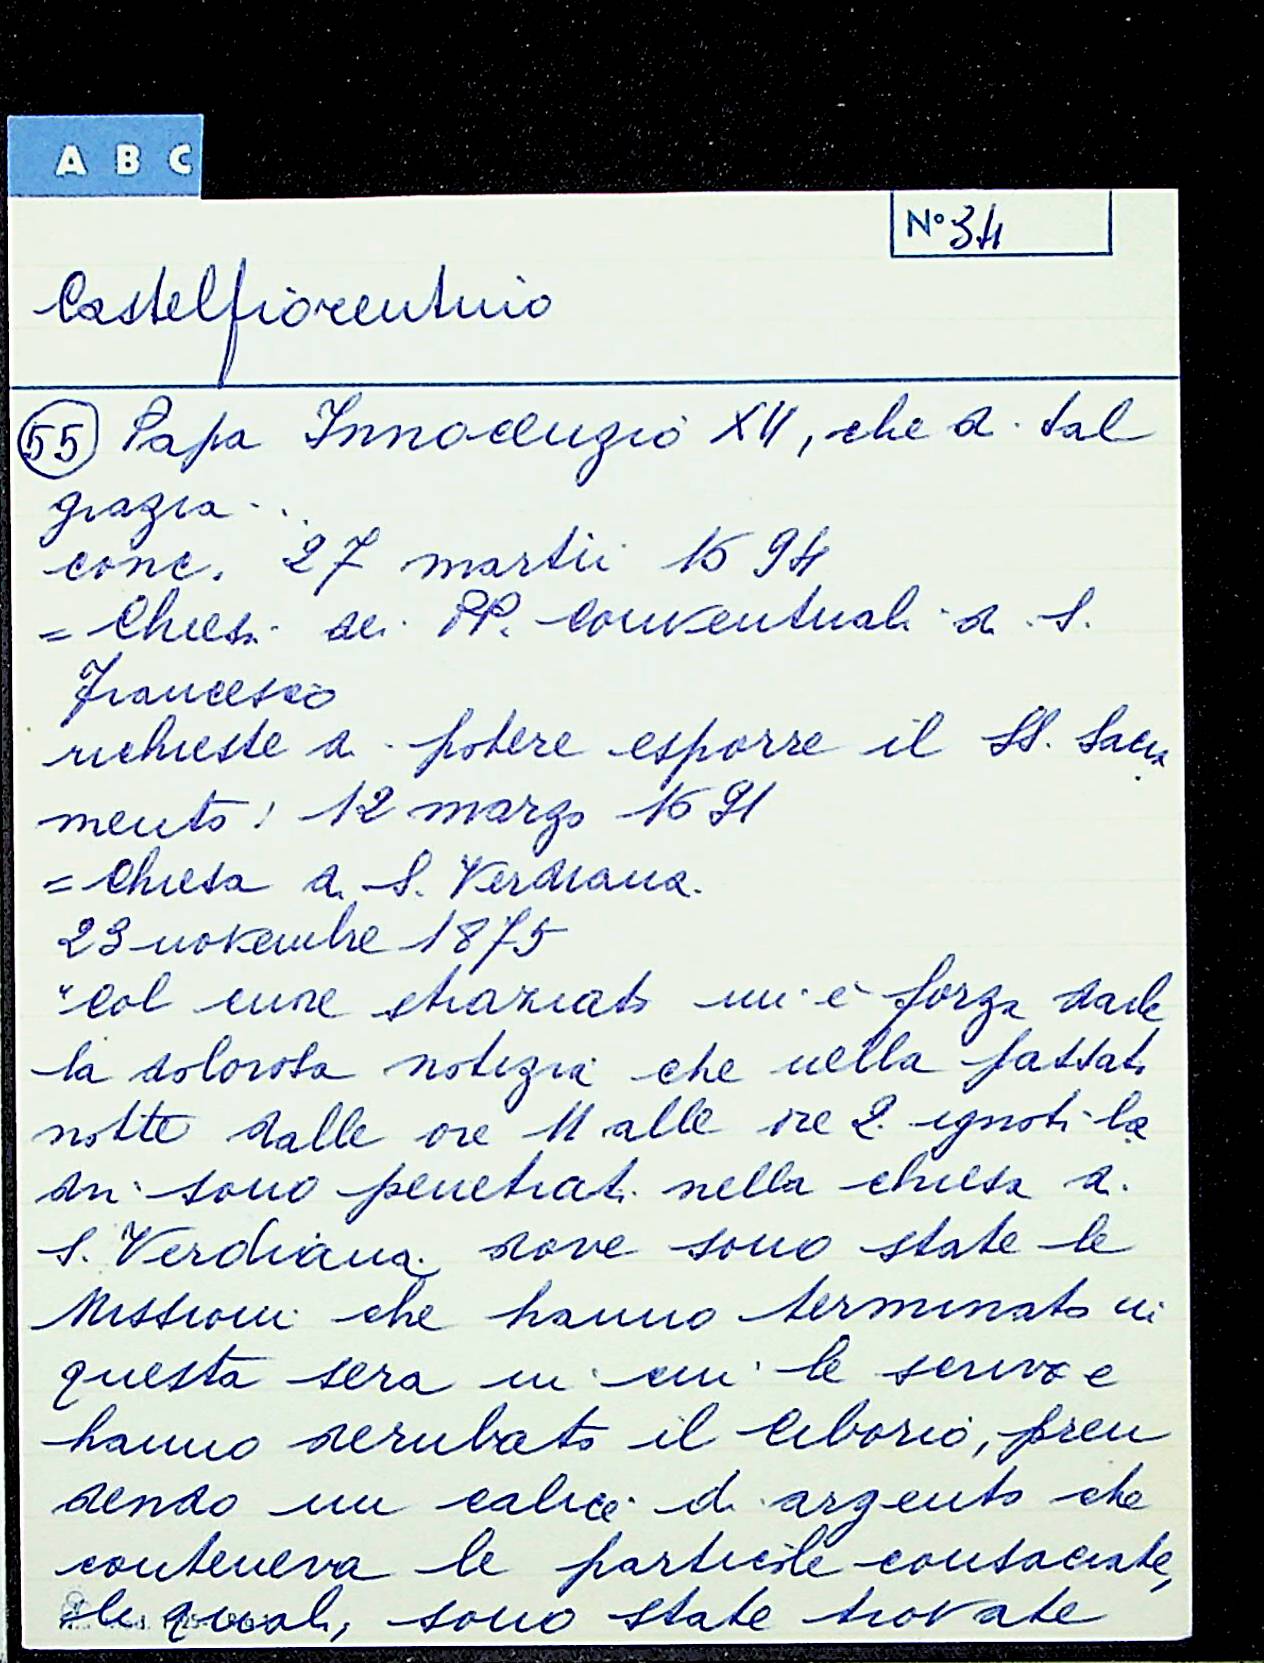 A B C
N° 34
Castelfiorentino
55 Papa Innocenzio XII, che di tal
grazia...
conc. 27 martii 1694
= Chiesa dei PP. Conventuali di S.
Francesco
richieste di potere esporre il SS. Sacra
mento: 12 marzo 1691
= Chiesa di S. Verdiana.
23 novembre 1875
"Col cuore straziato mi è forza darle
la dolorosa notizia che nella passata
notte dalle ore 11 alle ore 2 ignoti la
dri sono penetrati nella chiesa di
S. Verdiana dove sono state le
Missioni che hanno terminato in
questa sera in cui le scrivo e
hanno derubato il Ciborio, pren
dendo un calice di argento che
conteneva le particole consacrate,
le quali, sono state trovate